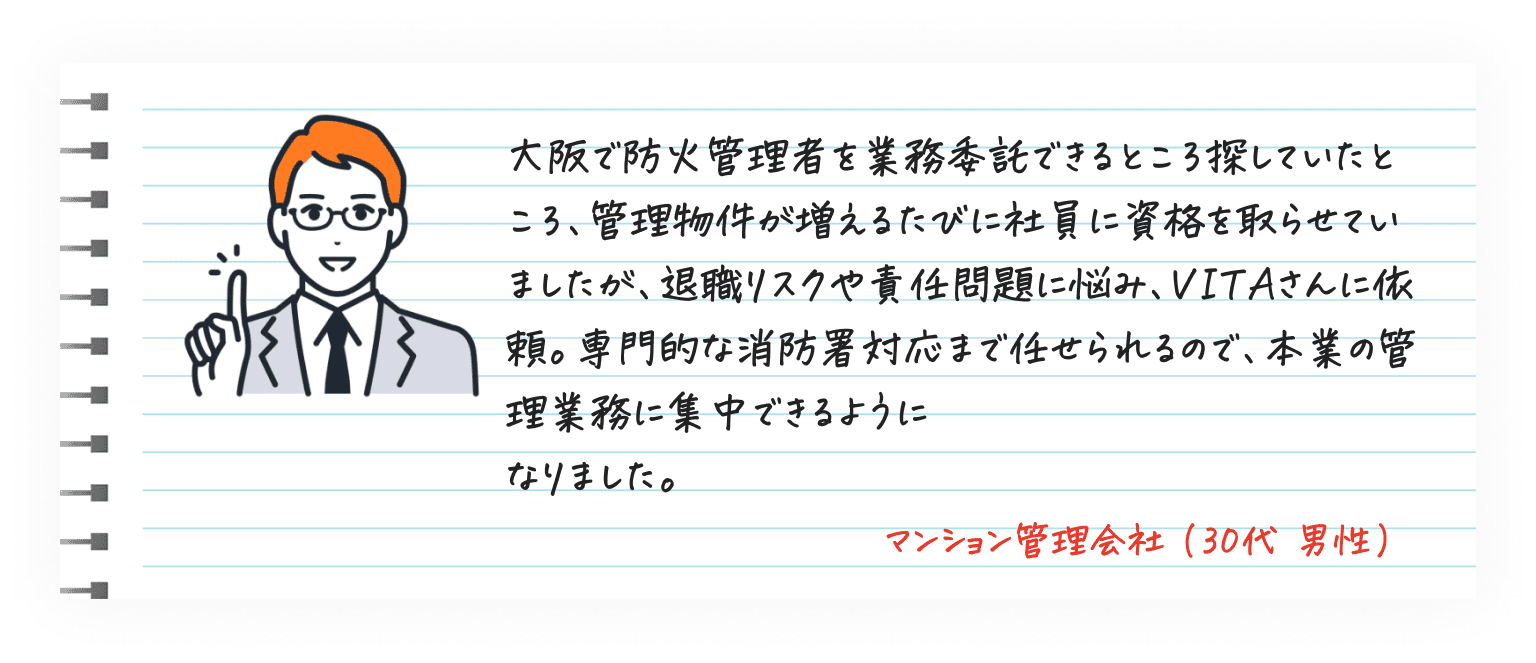 大阪で防火管理者を業務委託できるところ探していたと
ころ、管理物件が増えるたびに社員に資格を取らせてい
ましたが、退職リスクや責任問題に悩み、VITAさんに依
頼。専門的な消防署対応まで任せられるので、本業の管
理業務に集中できるように
なりました。
マンション管理会社（30代 男性）